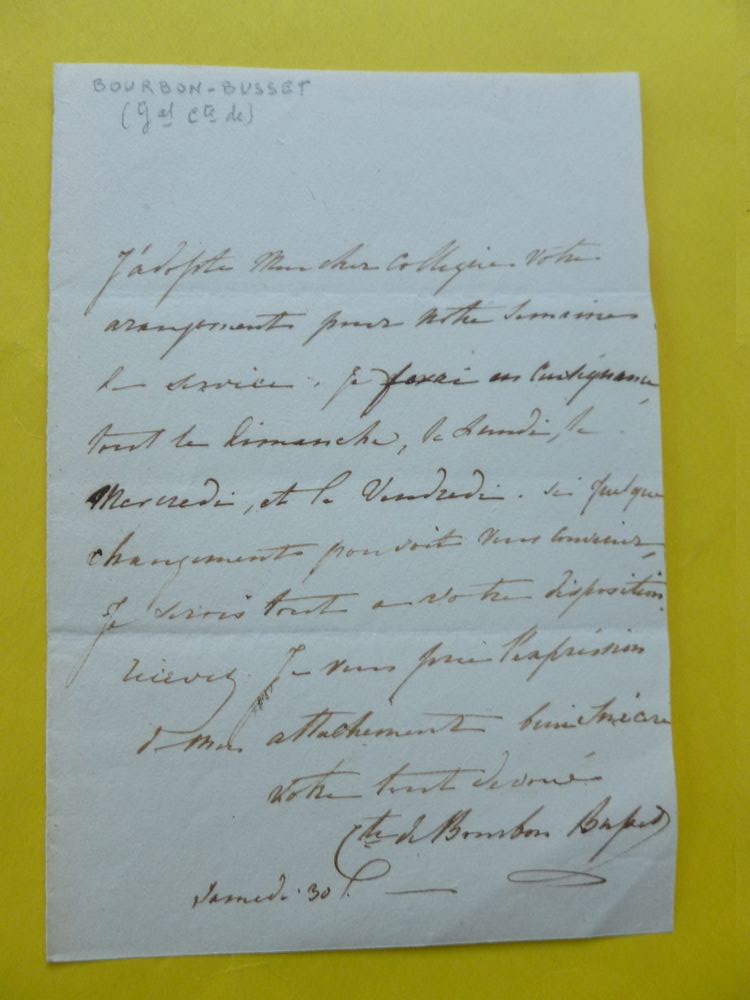 BOURBON-BUSSET
(Gal Cte de)
J'adopte Mon cher Collegue votre
arangement pour notre semaine
de service. je ferai en Conséquence
tout le dimanche, le Lundi, le
Mercredi, et le Vendredi. si quelque
changement pouvoit vous convenir,
je serois tout a votre disposition
recevez je vous prie l'expression
de mon attachement bien sincere
votre tout devoué
Cte de Bourbon Busset
Samedi 30